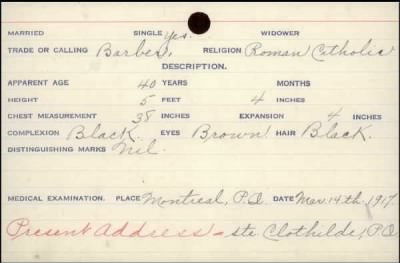 MARRIED SINGLE yes. WIDOWER
TRADE OR CALLING Barber, RELIGION Roman Catholic
DESCRIPTION.
APPARENT AGE 40 YEARS MONTHS
HEIGHT 5 FEET 4 INCHES
CHEST MEASUREMENT 38 INCHES EXPANSION 4 INCHES
COMPLEXION Black. EYES Brown HAIR Black.
DISTINGUISHING MARKS Nil.
MEDICAL EXAMINATION. PLACE Montreal, P.Q. DATE Mar. 14th, 1917.
Present Address - Ste. Clothilde, P.Q.